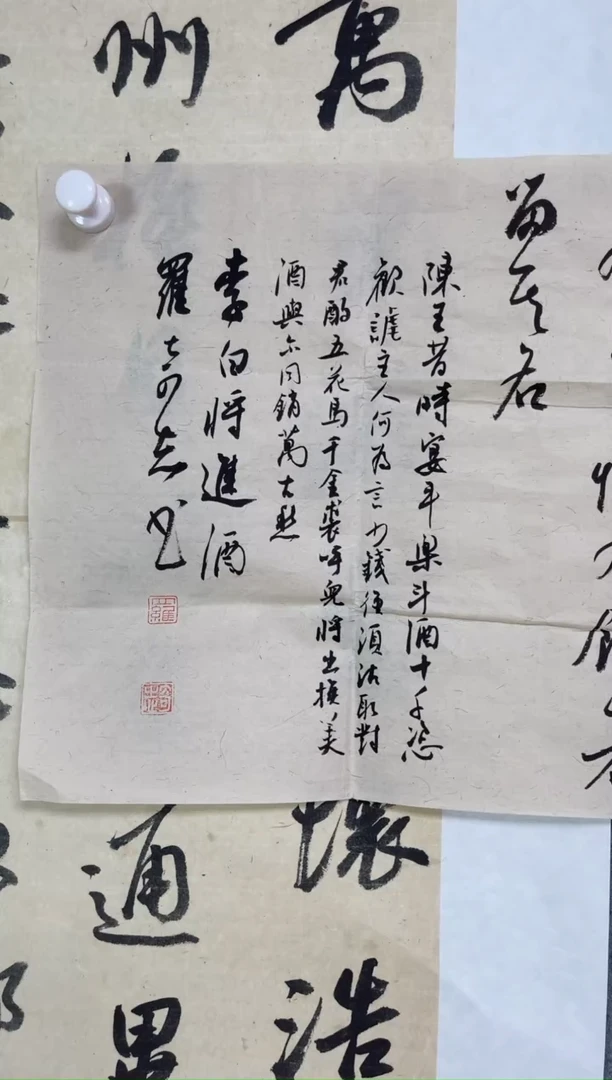 萬
州
留其名
陳王昔時宴平樂斗酒十千恣
歡謔主人何為言少錢徑須沽取對
君酌五花馬千金裘呼兒將出換美
酒與尔同銷萬古愁
李白將進酒
羅 书
懷浩
通